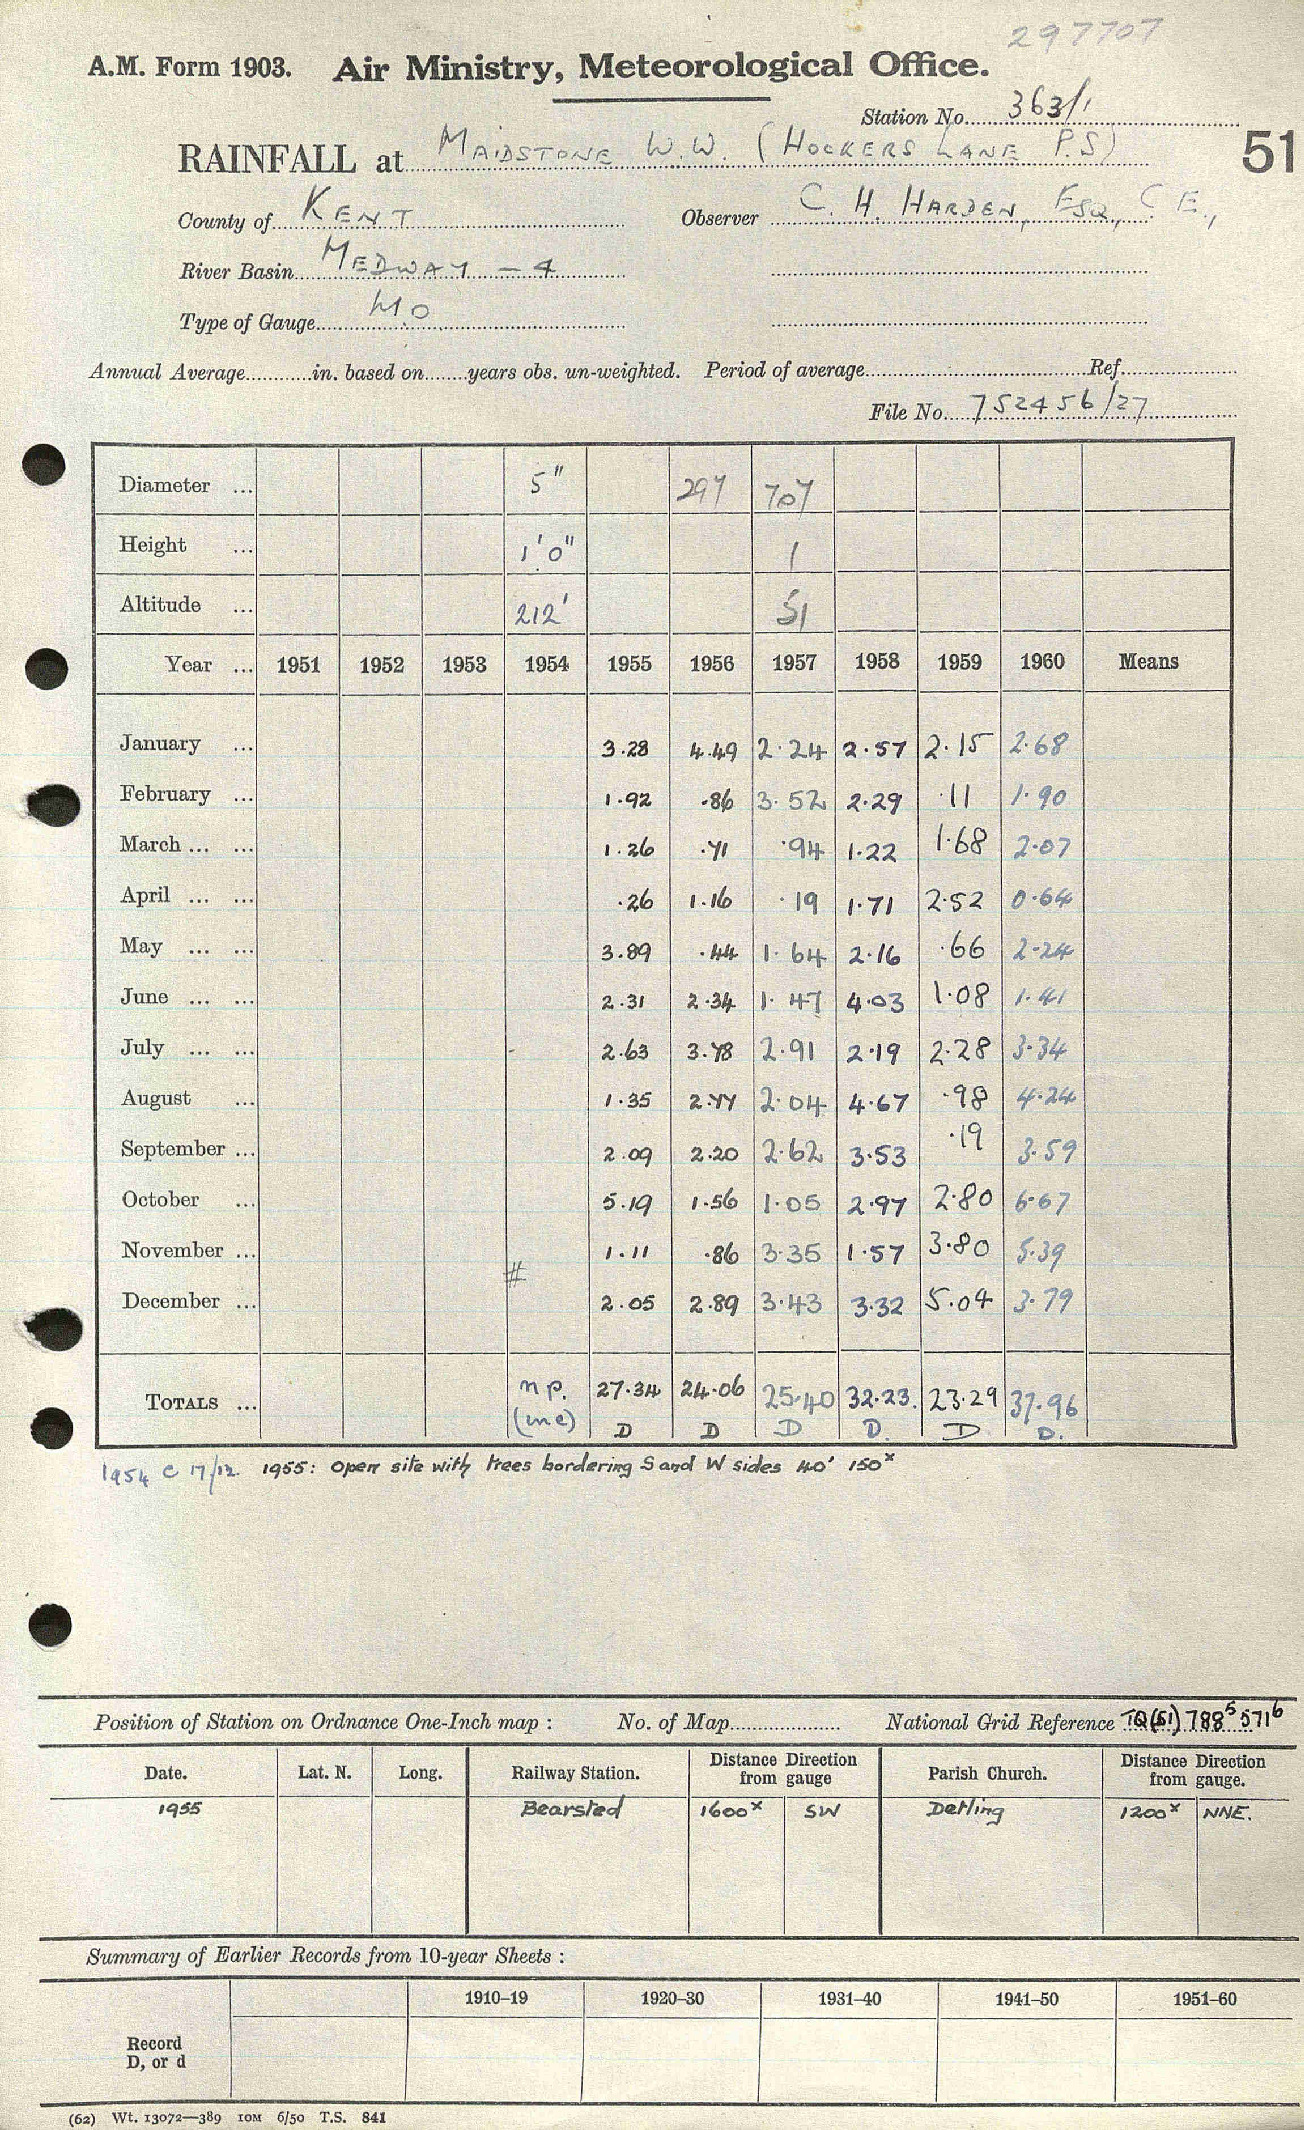 297707
A.M. Form 1903. Air Ministry, Meteorological Office.
Station No. 363/1
RAINFALL at MAIDSTONE W.W. (HOCKERS LANE P.S)
51
County of KENT Observer C. H. HARDEN, ESQ., C.E.,
River Basin MEDWAY – 4
Type of Gauge M.O
Annual Average in. based on years obs. un-weighted. Period of average Ref.
File No. 752456/27
Diameter ... 5" 297 707
Height ... 1'0" 1
Altitude ... 212' 51
Year ... 1951 1952 1953 1954 1955 1956 1957 1958 1959 1960 Means
January ... 3.28 4.49 2.24 2.57 2.15 2.68
February ... 1.92 .86 3.52 2.29 .11 1.90
March ... ... 1.26 .71 .94 1.22 1.68 2.07
April ... ... .26 1.16 .19 1.71 2.52 0.64
May ... ... 3.89 .44 1.64 2.16 .66 2.24
June ... ... 2.31 2.34 1.47 4.03 1.08 1.41
July ... ... 2.63 3.78 2.91 2.19 2.28 3.34
August ... 1.35 2.77 2.04 4.67 .98 4.24
September ... 2.09 2.20 2.62 3.53 .19 3.59
October ... 5.19 1.56 1.05 2.97 2.80 6.67
November ... 1.11 .86 3.35 1.57 3.80 5.39
December ... # 2.05 2.89 3.43 3.32 5.04 3.79
TOTALS ... n p. 27.34 24.06 25.40 32.23. 23.29 37.96
(inc) D D D D. D D.
1954 C 17/12. 1955: Open site with trees bordering S and W sides 40' 150x
Position of Station on Ordnance One-Inch map : No. of Map National Grid Reference TQ(51) 788⁵ 571⁶
Date. Lat. N. Long. Railway Station. Distance Direction from gauge Parish Church. Distance Direction from gauge.
1955 Bearsted 1600x SW Detling 1200x NNE.
Summary of Earlier Records from 10-year Sheets :
1910–19 1920–30 1931–40 1941–50 1951–60
Record
D, or d
(62) Wt. 13072—389 10M 6/50 T.S. 841